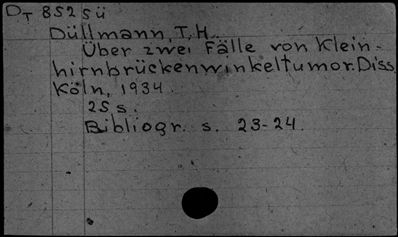 DT 852 sü
Düllmann, T. H.
Über zwei Fälle von Klein-
hirnbrückenwinkeltumor. Diss.
Köln, 1934.
25 s.
Bibliogr. s. 23-24.